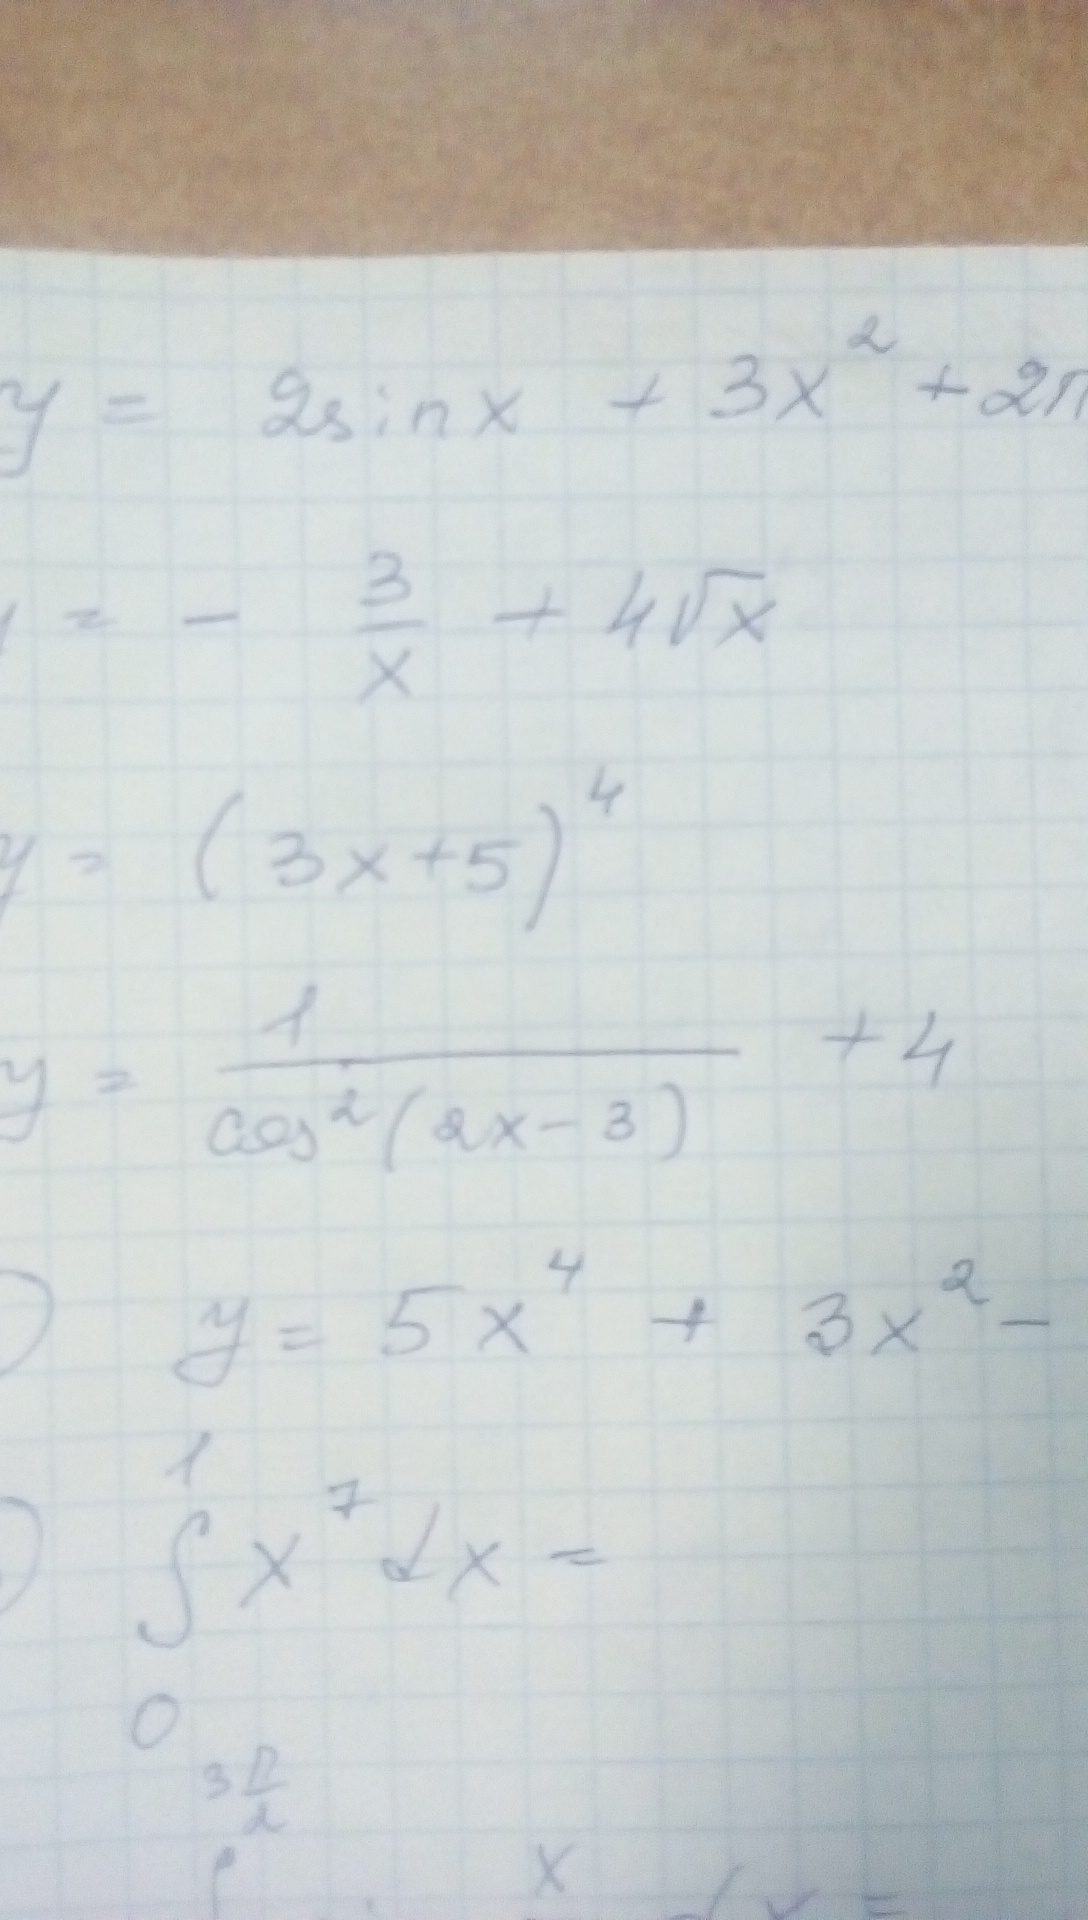 y = 2sinx + 3x² + 2π
y = - 3/x + 4√x
y = (3x+5)⁴
y = 1/cos²(2x-3) + 4
) y = 5x⁴ + 3x² -
) ∫₀¹ x⁷ dx =
3π/2 ∫ x dx =